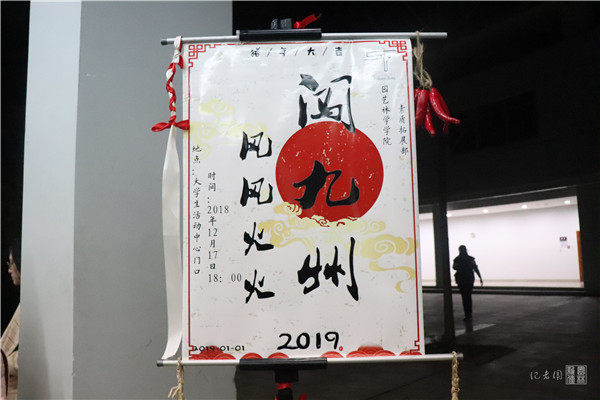 猪/年/大/吉
素质拓展部
园艺林学学院
闯九州
风风火火
时间:2018年12月17日18:00
地点:大学生活动中心门口
2019-01-01
2019.
记者团